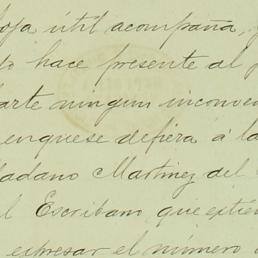 oja útil acompaña,
lo hace presente al
parte ningun inconve
enguese defiera á la
dadano Martinez del
l Escribano, que estié
espresar el número